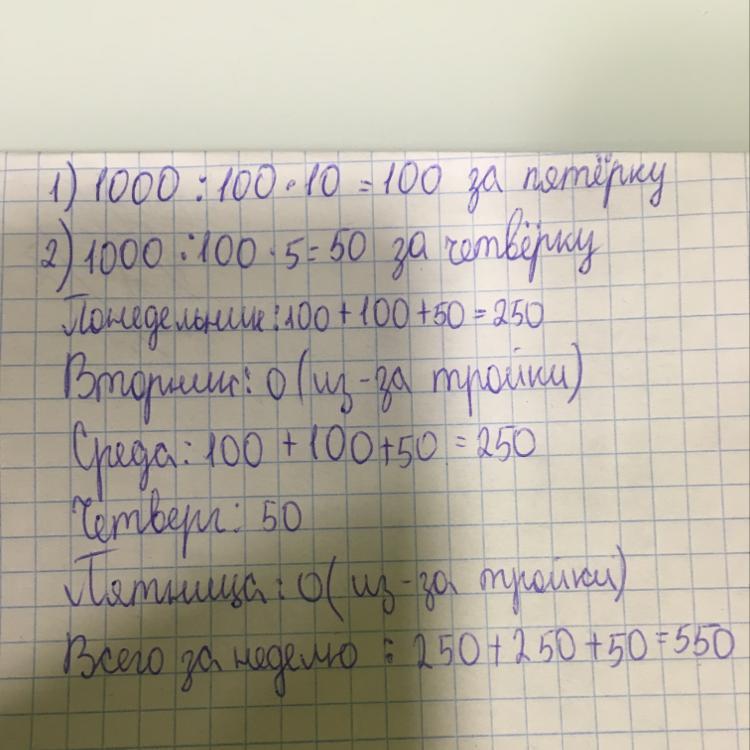 1) 1000 : 100 · 10 = 100 за пятёрку
2) 1000 : 100 · 5 = 50 за четвёрку
Понедельник: 100 + 100 + 50 = 250
Вторник: 0 (из-за тройки)
Среда: 100 + 100 + 50 = 250
Четверг: 50
Пятница: 0 (из-за тройки)
Всего за неделю : 250 + 250 + 50 = 550